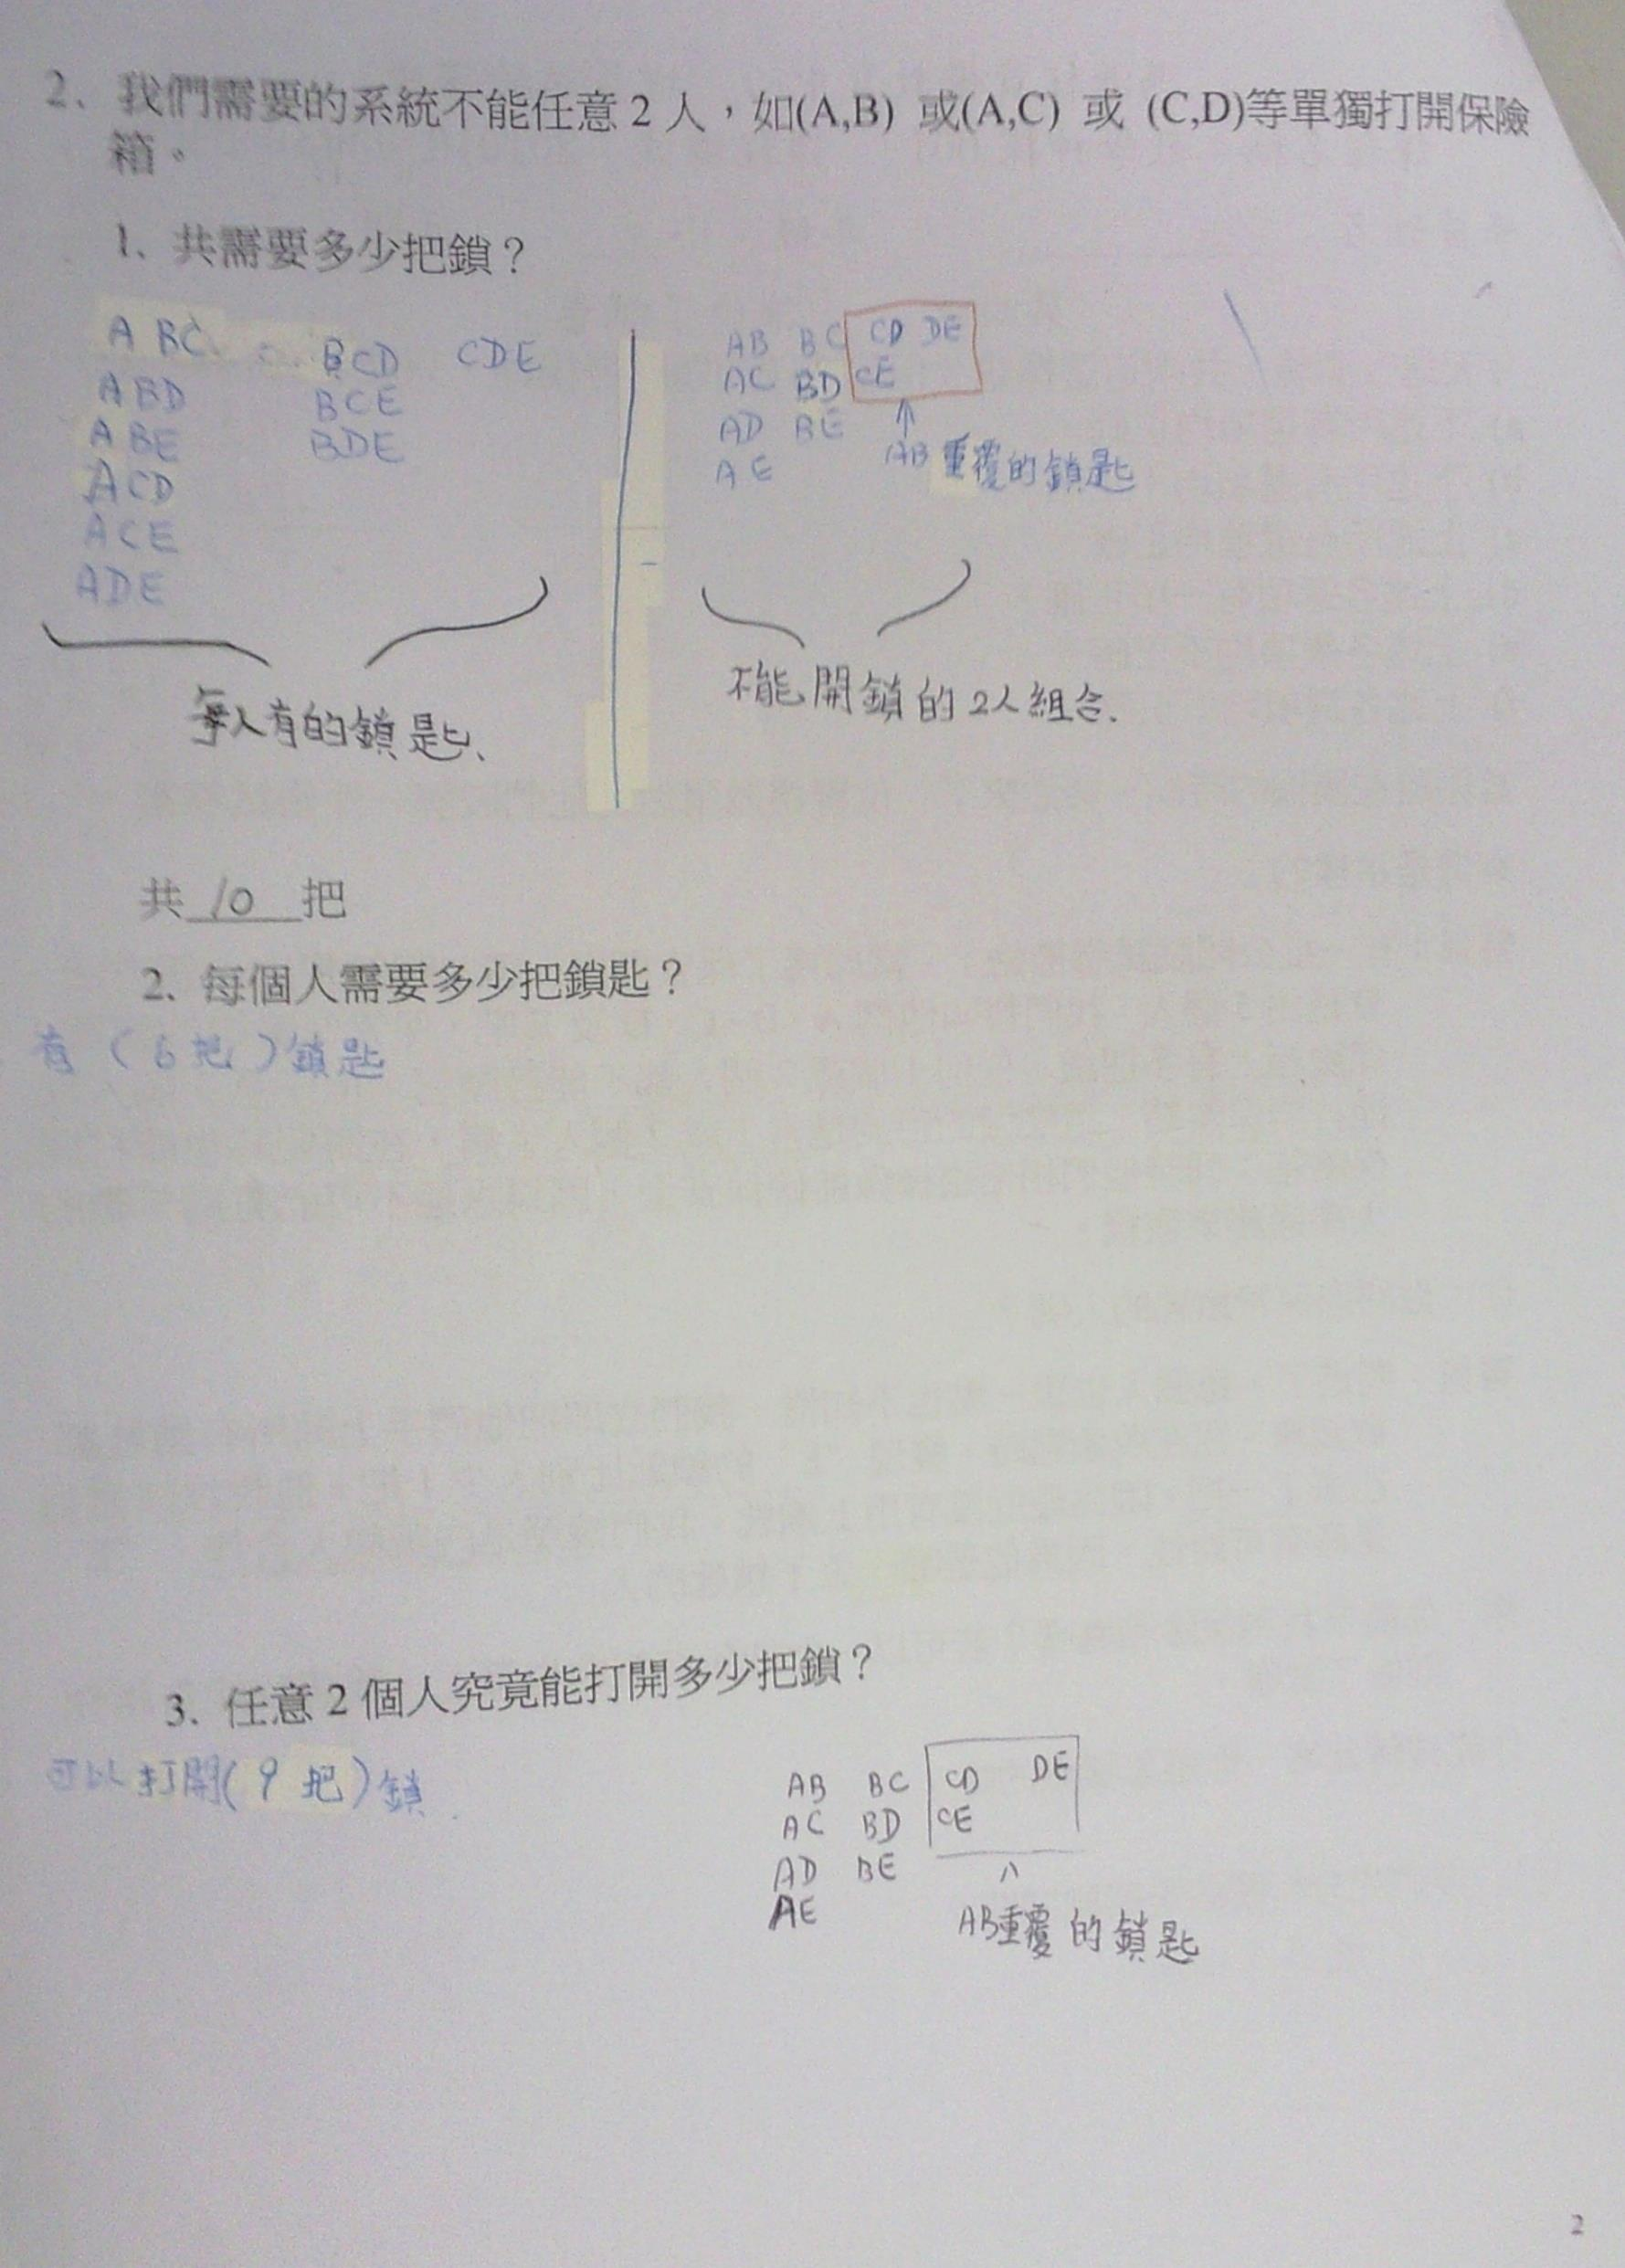 2、我們需要的系統不能任意 2 人，如(A,B) 或(A,C) 或 (C,D)等單獨打開保險
箱。
1、共需要多少把鎖？
ABC BCD CDE
ABD BCE
ABE BDE
ACD
ACE
ADE
每人有的鎖匙、
AB BC CD DE
AC BD CE
AD BE
AE
↑
AB重覆的鎖匙
不能開鎖的2人組合.
共 10 把
2、每個人需要多少把鎖匙？
有（6把）鎖匙
3. 任意 2 個人究竟能打開多少把鎖？
可以打開(9把)鎖.
AB BC CD DE
AC BD CE
AD BE
AE
AB重覆的鎖匙
2